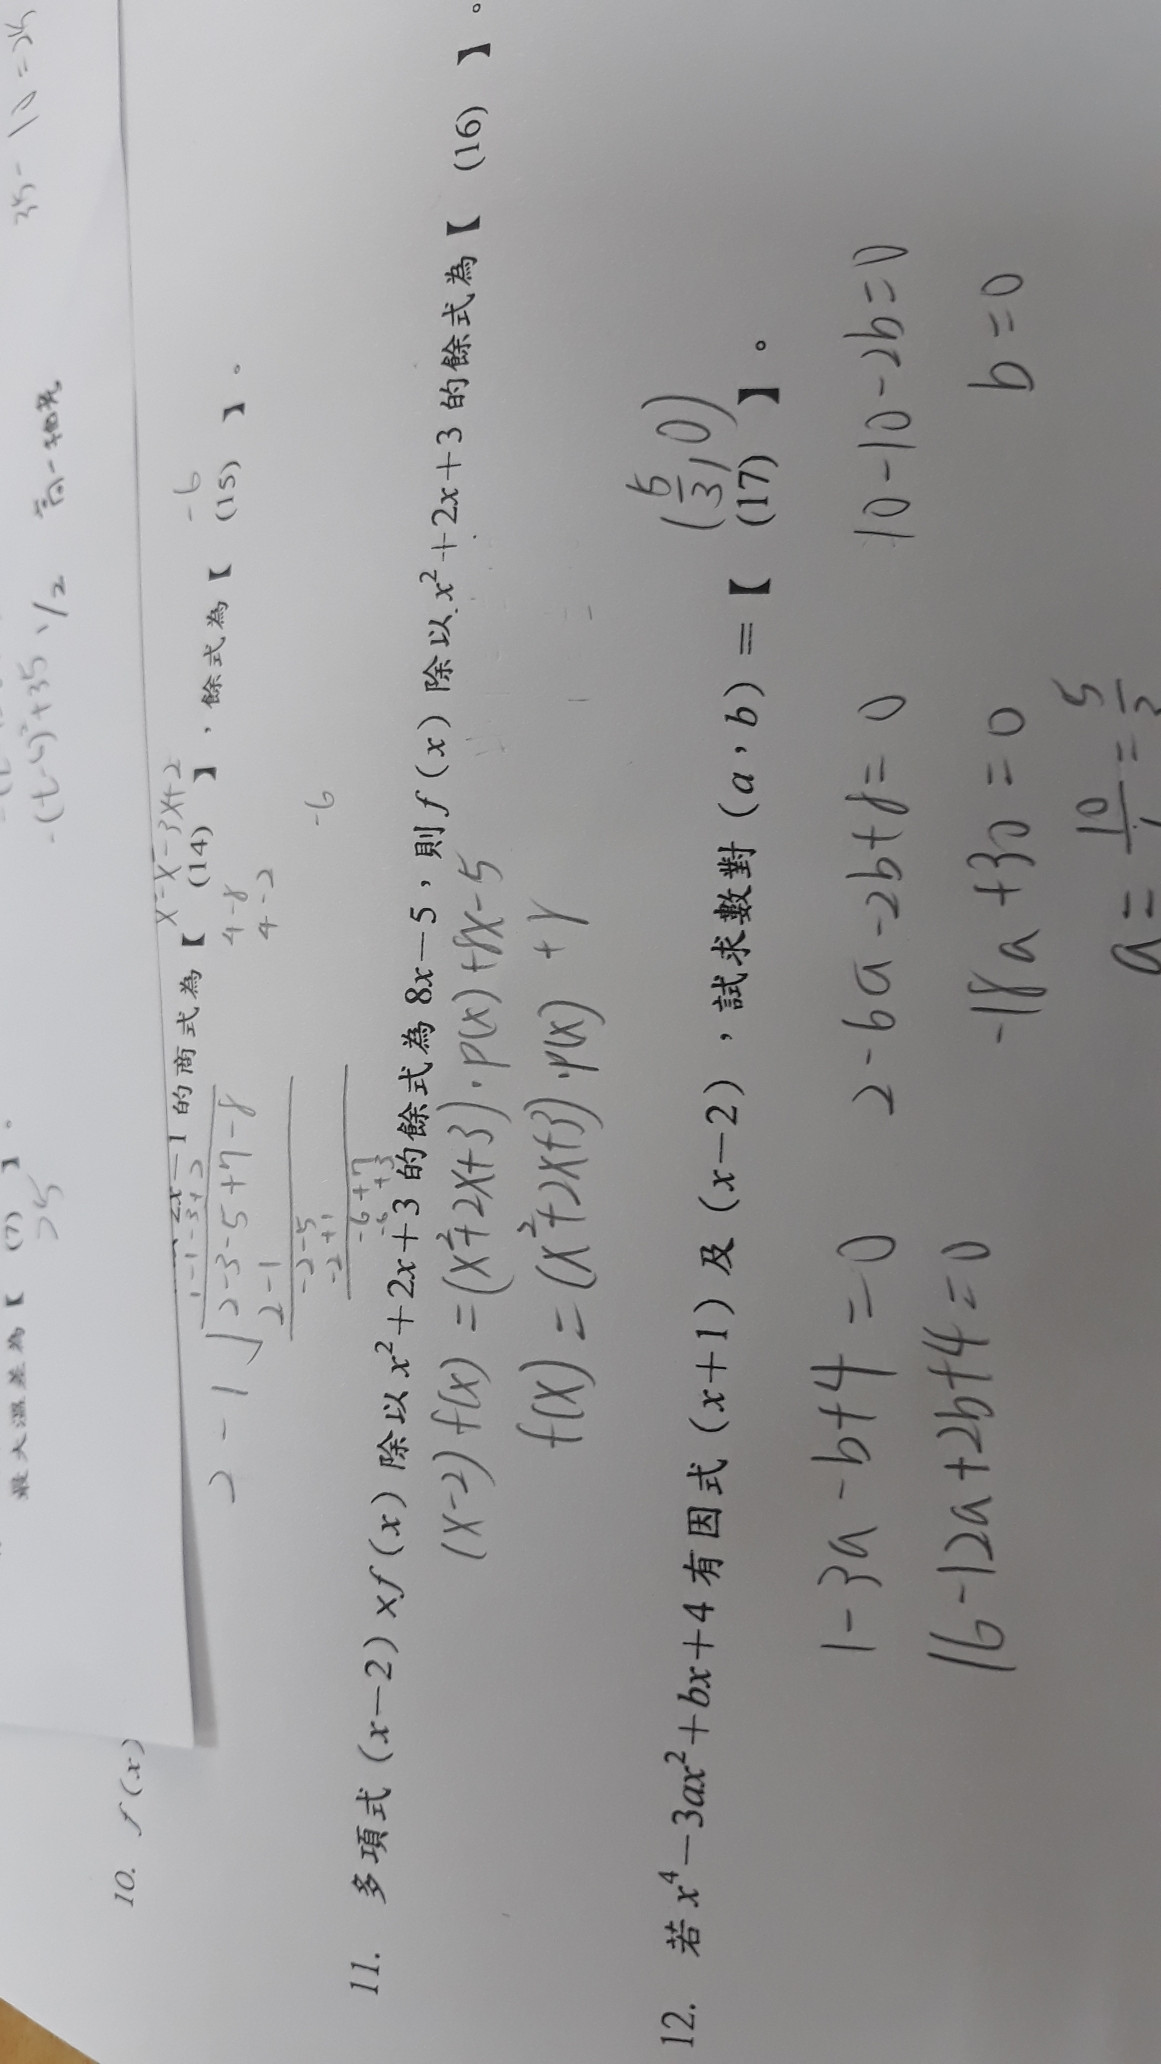 35-10=25
-(t-5)²+35
1/2
高一抽考
最大溫差為【 (7) 】。
25
10. f(x)
2x-1的商式為【 (14) 】,餘式為【 (15) 】。
-6
1-1-3+2
2-1
2-3-5+7-8
2-1
-2-5
-2+1
-6+7
-6+3
4-8
4-2
-6
11. 多項式(x-2)×f(x)除以x²+2x+3的餘式為8x-5,則f(x)除以x²+2x+3的餘式為【 (16) 】。
(x-2)f(x)=(x²+2x+3)·p(x)+8x-5
f(x)=(x²+2x+3)·p(x)+r
12. 若x⁴-3ax²+bx+4有因式(x+1)及(x-2),試求數對(a,b)=【 (17) 】。
(5/3,0)
1-3a-b+4=0
2-6a-2b+8=0
10-10-2b=0
16-12a+2b+4=0
-18a+30=0
b=0